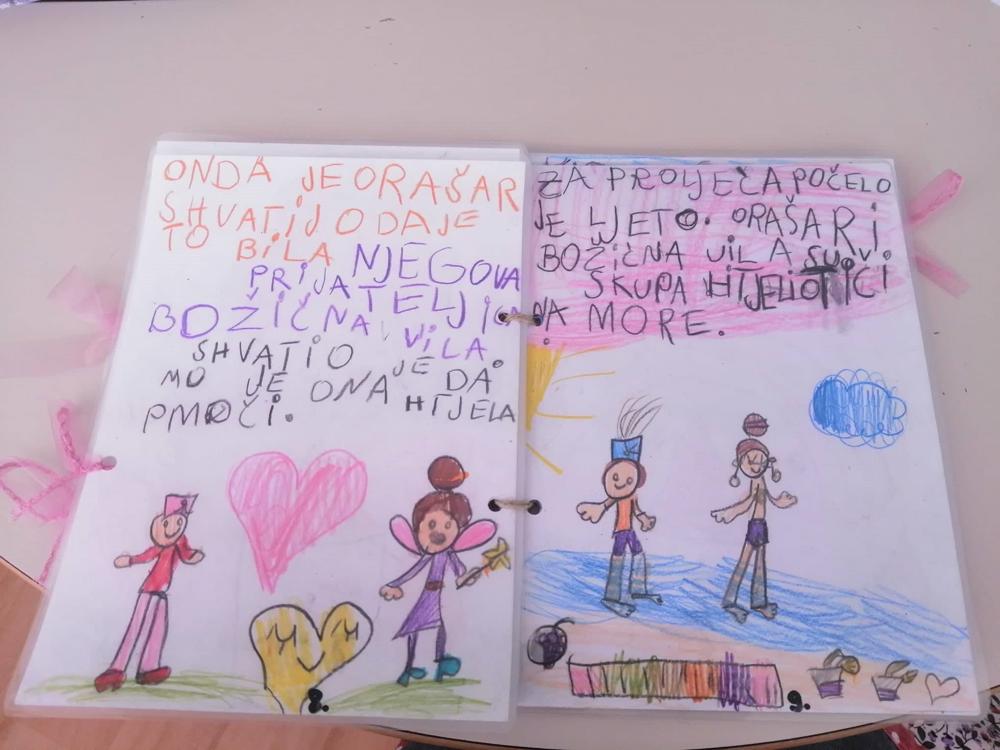 ONDA JE ORAŠAR
SHVATIJO DA JE
TO BILA NJEGOVA
PRIJATELJICA
BOŽIČNA VILA.
SHVATIO JE DA
MO JE ONA HTJELA
PMOČI.
8.
ZA PROLJEČA POČELO
JE LJETO. ORAŠAR I
BOŽIČNA VILA SU
SKUPA HTJELI OTIĆI
NA MORE.
9.